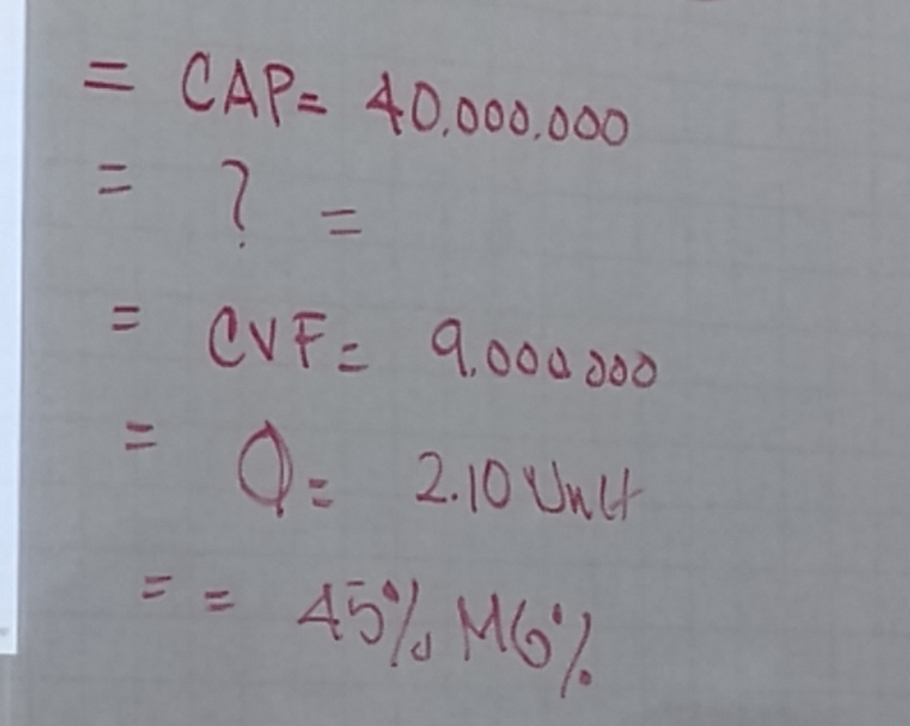 = CAP= 40.000.000
= ? =
= CVF= 9.000000
= Q= 2.10 Unit
= = 45% MG%